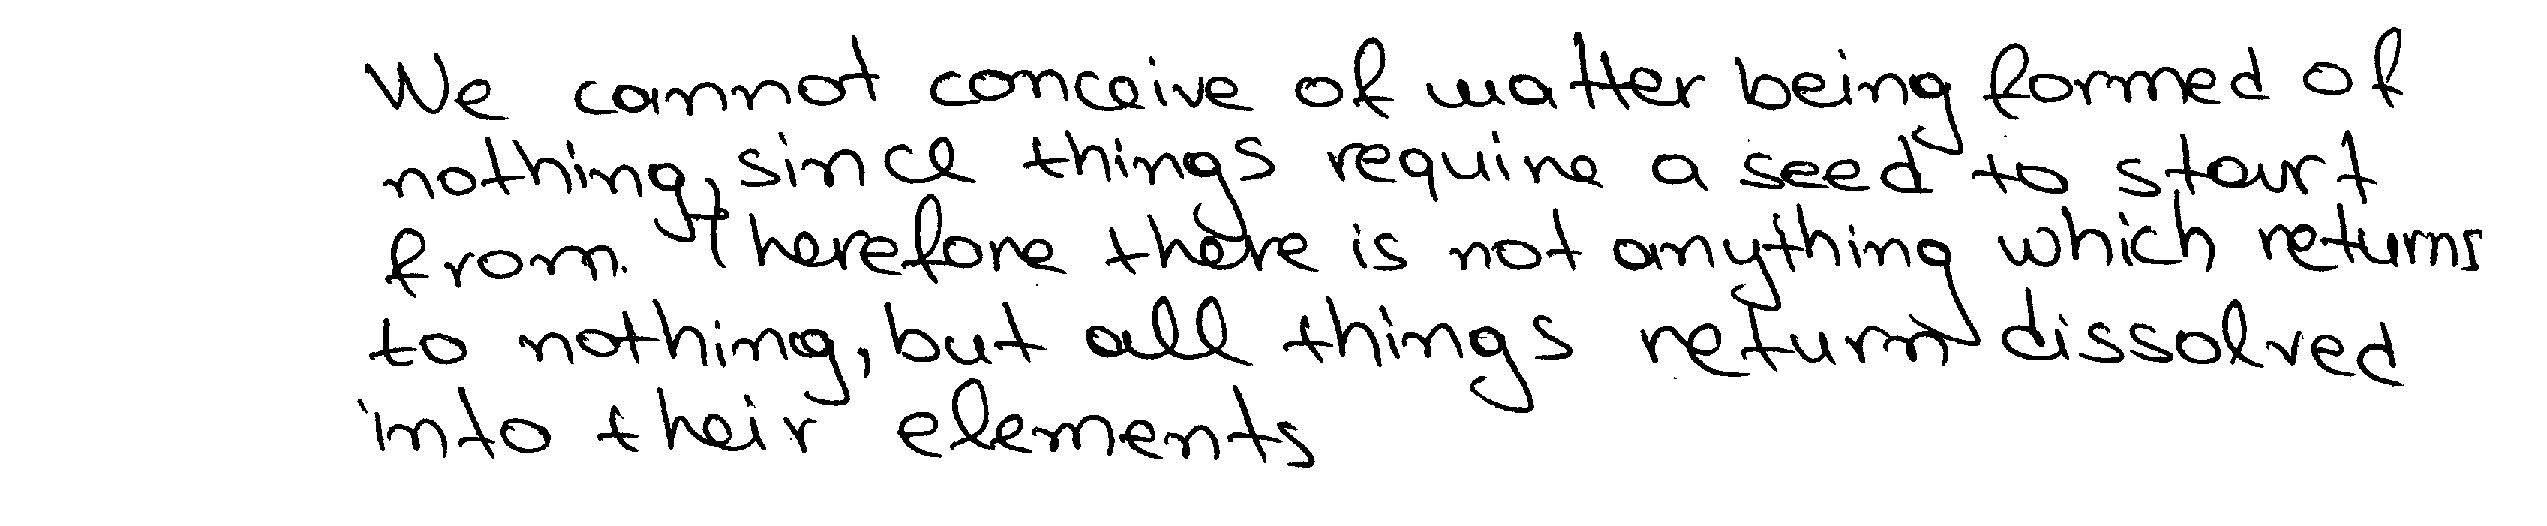 We cannot conceive of matter being formed of
nothing, since things require a seed to start
from. Therefore there is not anything which returns
to nothing, but all things return dissolved
into their elements